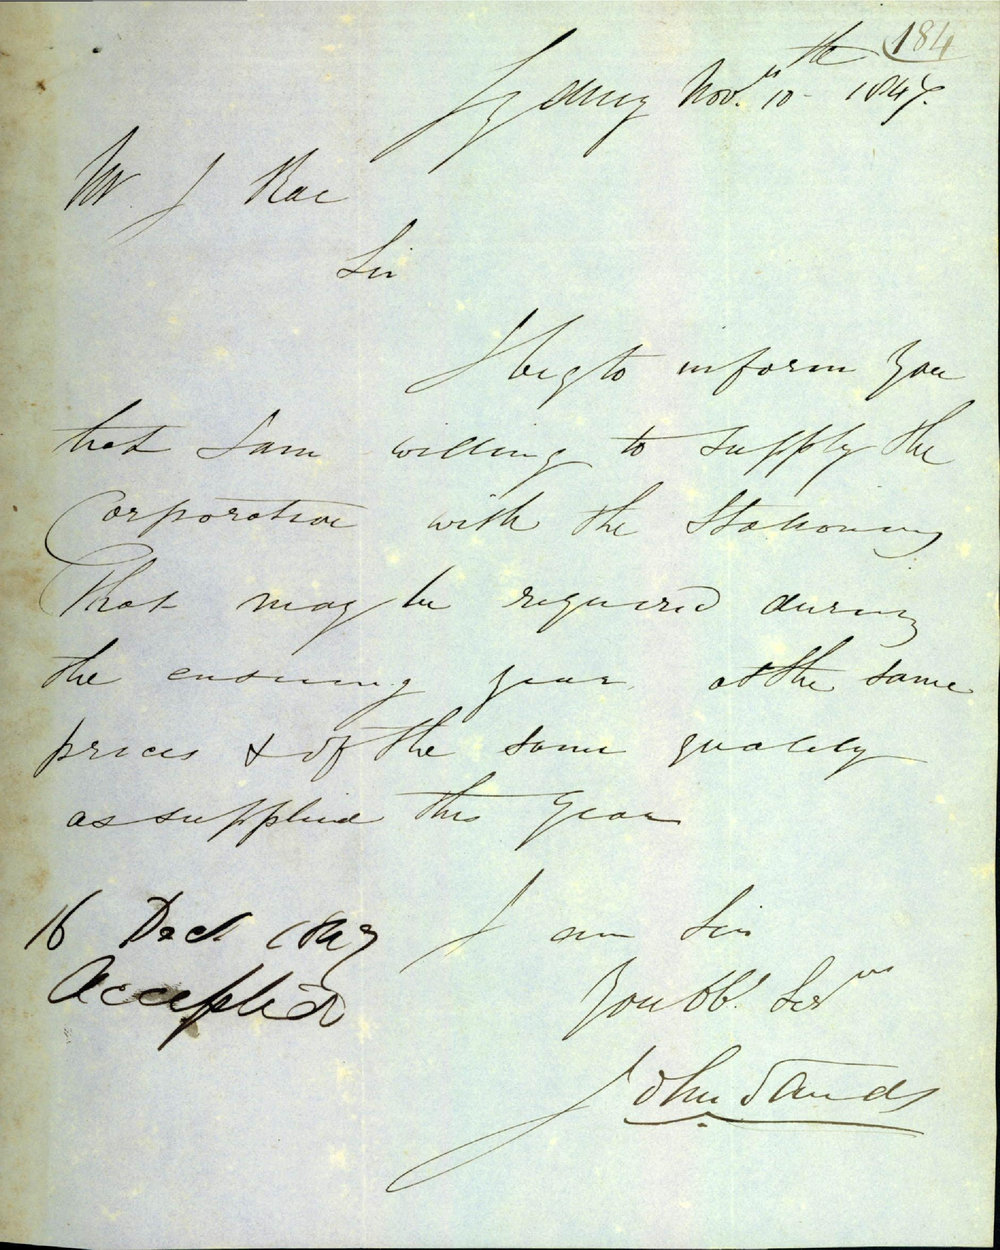 184
Sydney Novr. 10th 1847.
Mr J Rae
Sir
I beg to inform you
that I am willing to supply the
Corporation with the Stationery
That may be required during
the ensuing year at the same
prices & of the same quality
as supplied this year
I am Sir
16 Decr 1847
Accepted
Your Obt. Ser
John Sands